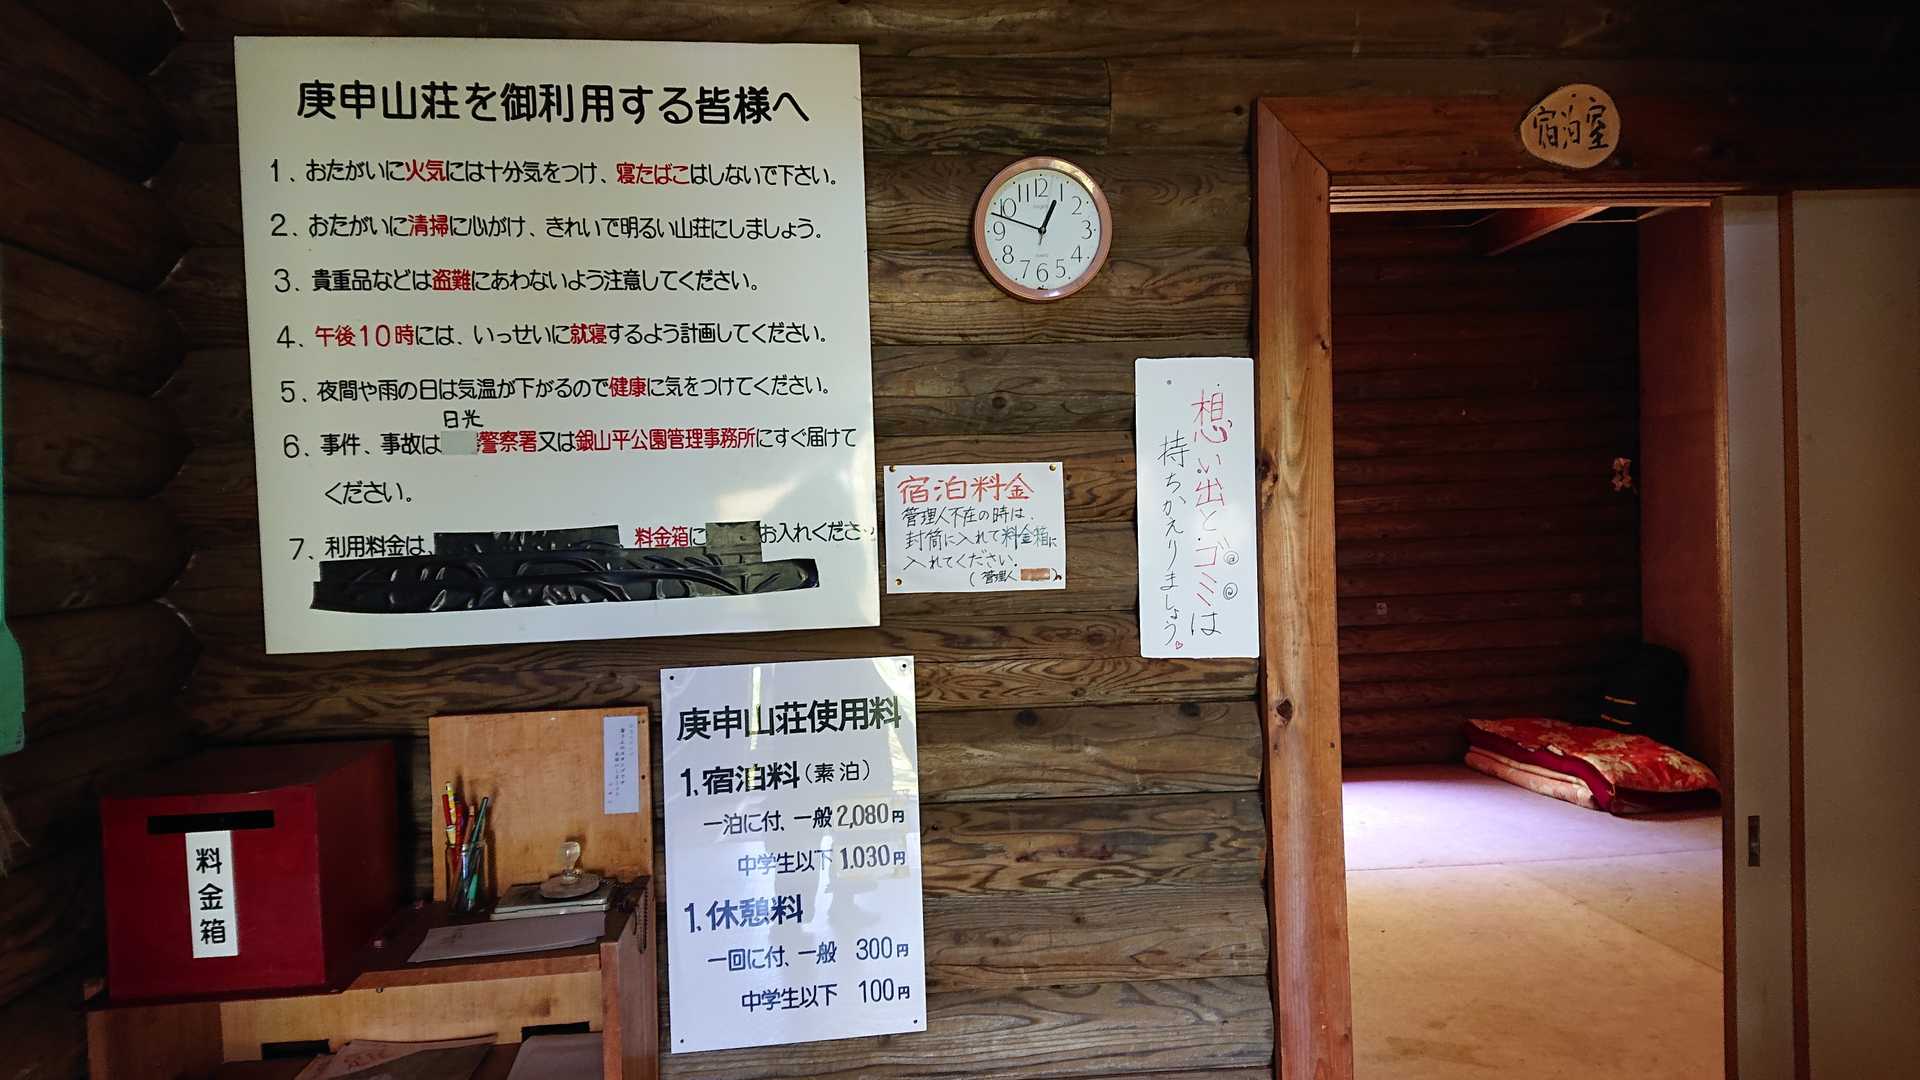 庚申山荘を御利用する皆様へ
1、おたがいに火気には十分気をつけ、寝たばこはしないで下さい。
2、おたがいに清掃に心がけ、きれいで明るい山荘にしましょう。
3、貴重品などは盗難にあわないよう注意してください。
4、午後10時には、いっせいに就寝するよう計画してください。
5、夜間や雨の日は気温が下がるので健康に気をつけてください。
日光
6、事件、事故は警察署又は銀山平公園管理事務所にすぐ届けて
ください。
7、利用料金は、料金箱に お入れくださ
12
1
2
3
4
5
6
7
8
9
10
11
宿泊室
宿泊料金
管理人不在の時は、
封筒に入れて料金箱に
入れてください。
(管理人 )
想い出とゴミは
持ちかえりましょう
料金箱
庚申山荘使用料
1.宿泊料(素泊)
一泊に付、一般2,080円
中学生以下1.030円
1.休憩料
一回に付、一般 300円
中学生以下 100円